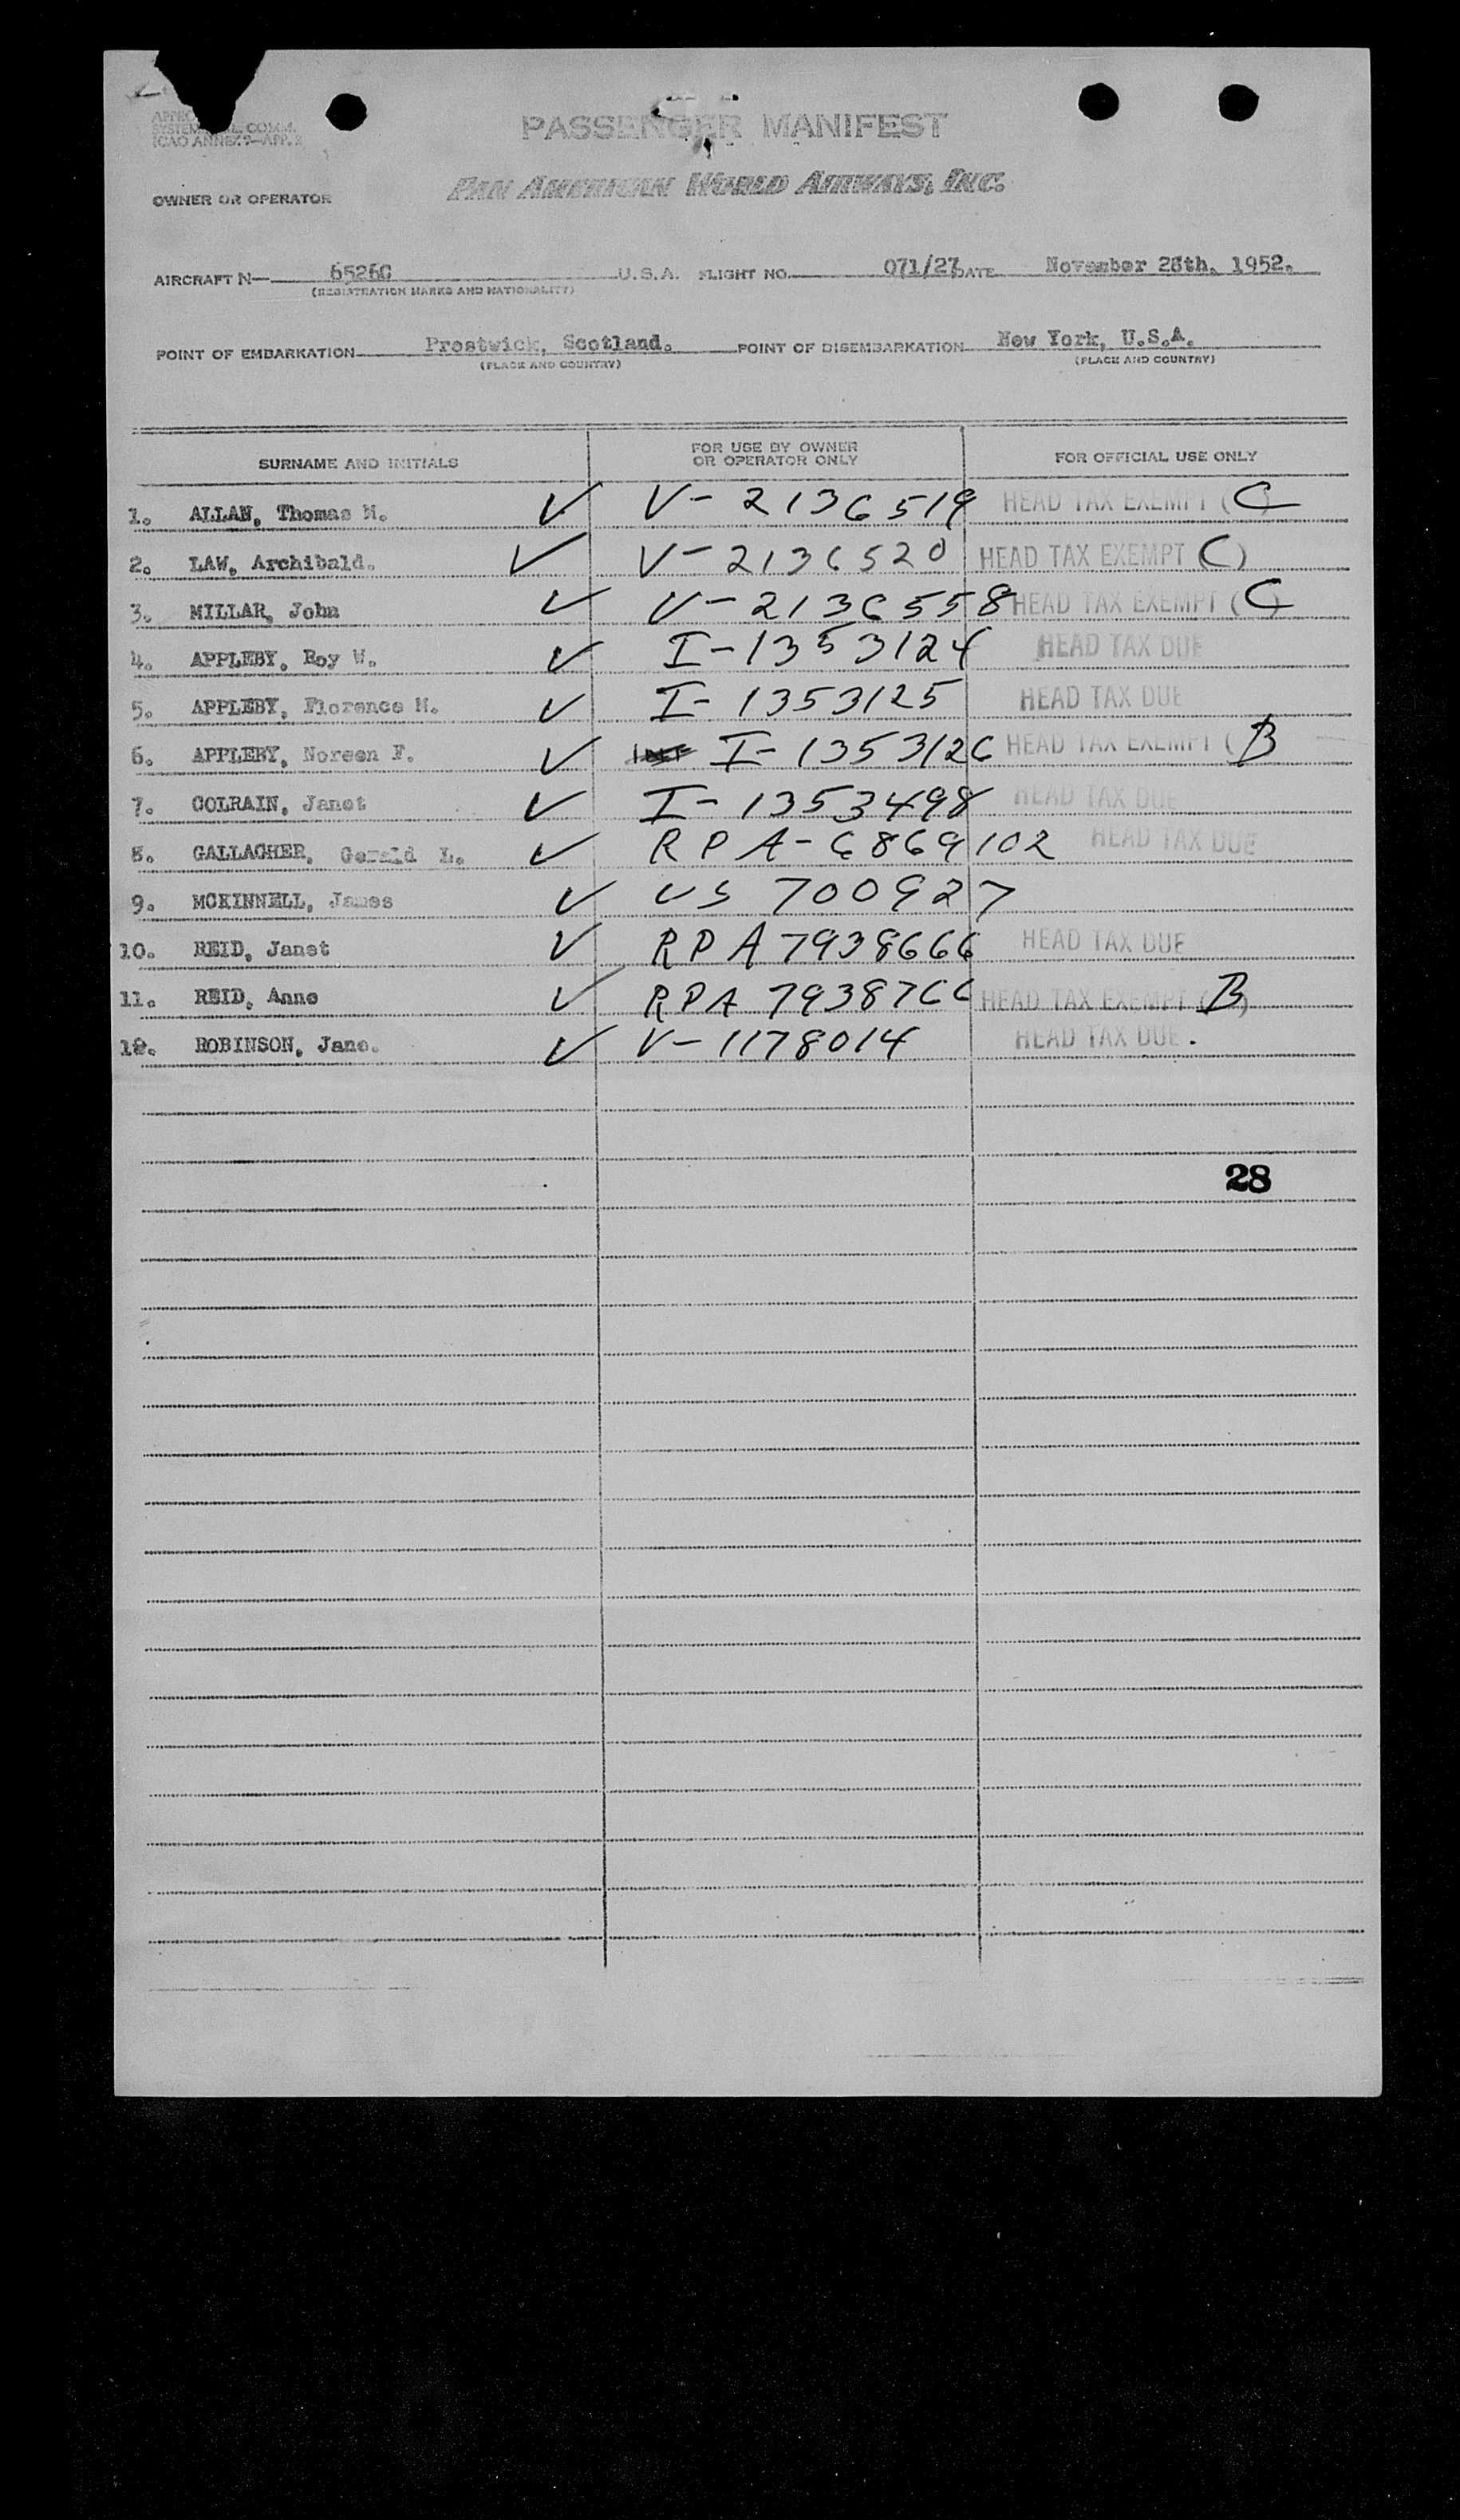 PASSENGER MANIFEST
SYSTEM COMM.
ICAO ANNEX 9—APP. 2
OWNER OR OPERATOR PAN AMERICAN WORLD AIRWAYS, INC.
AIRCRAFT N— 6526C U.S.A. FLIGHT NO. 071/27 DATE November 28th. 1952.
(REGISTRATION MARKS AND NATIONALITY)
POINT OF EMBARKATION Prestwick, Scotland. POINT OF DISEMBARKATION New York, U.S.A.
(PLACE AND COUNTRY) (PLACE AND COUNTRY)
SURNAME AND INITIALS FOR USE BY OWNER OR OPERATOR ONLY FOR OFFICIAL USE ONLY
1. ALLAN, Thomas M. ✓ V-2136519 HEAD TAX EXEMPT (C)
2. LAW, Archibald. ✓ V-2136520 HEAD TAX EXEMPT (C)
3. MILLAR, John ✓ V-2136558 HEAD TAX EXEMPT (C)
4. APPLEBY, Roy W. ✓ I-1353124 HEAD TAX DUE
5. APPLEBY, Florence M. ✓ I-1353125 HEAD TAX DUE
6. APPLEBY, Noreen F. ✓ I-1353126 HEAD TAX EXEMPT (B
7. COLRAIN, Janet ✓ I-1353498 HEAD TAX DUE
8. GALLAGHER, Gerald L. ✓ RPA-6869102 HEAD TAX DUE
9. MCKINNELL, James ✓ US 700927
10. REID, Janet ✓ RPA 7938666 HEAD TAX DUE
11. REID, Anne ✓ RPA 7938766 HEAD TAX EXEMPT (B)
12. ROBINSON, Jane. ✓ V-1178014 HEAD TAX DUE.
28